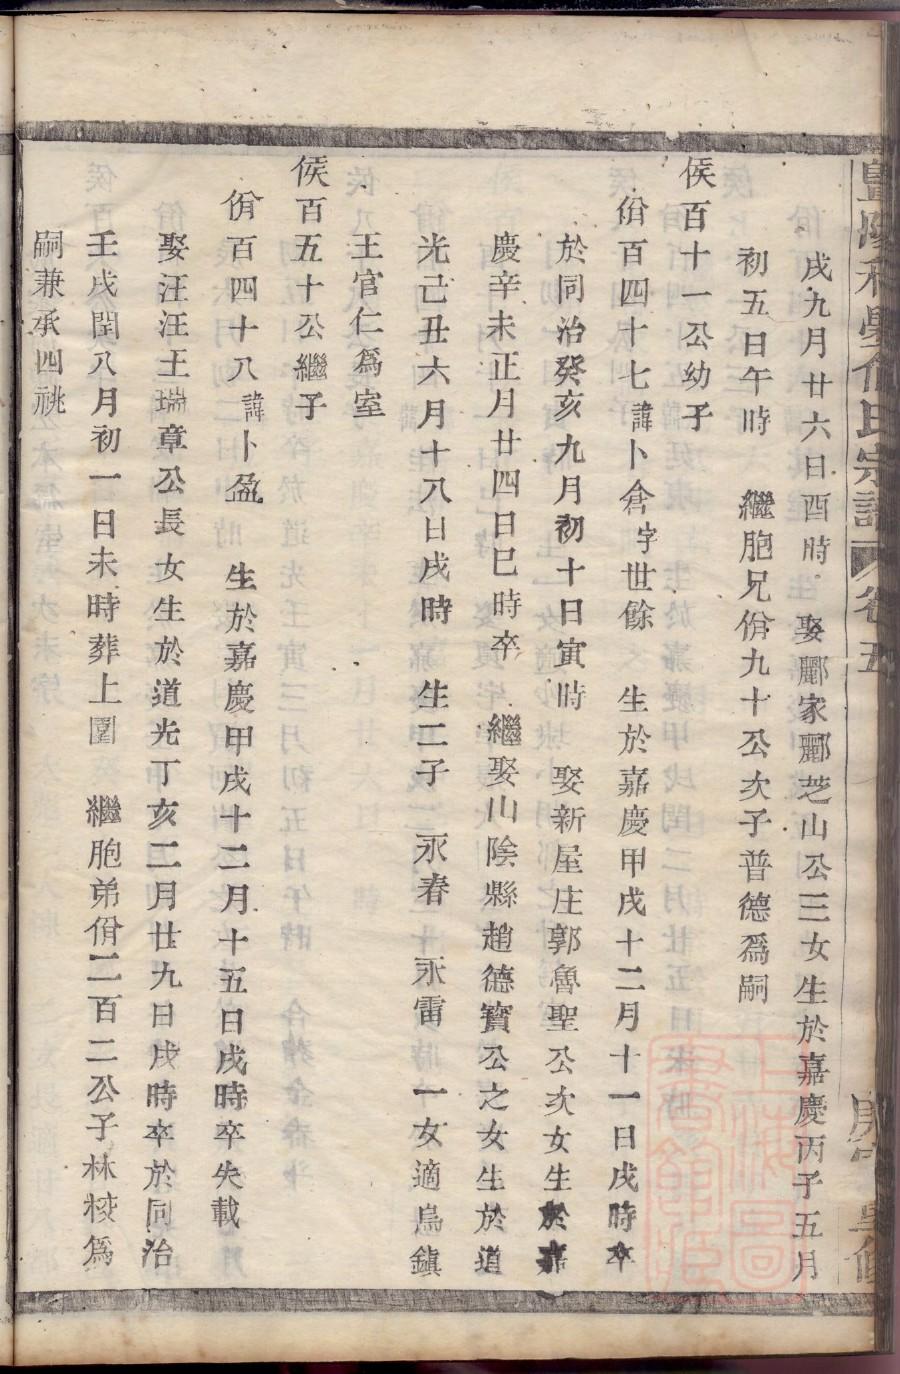 戌九月廿六日酉時 娶酈家酈芝山公三女生於嘉慶丙子五月
初五日午時 繼胞兄佾九十公次子普德爲嗣
侯百十一公幼子
佾百四十七諱卜倉字世餘 生於嘉慶甲戌十二月十一日戌時卒
於同治癸亥九月初十日寅時 娶新屋庄郭魯聖公次女生於嘉
慶辛未正月廿四日巳時卒 繼娶山陰縣趙德寶公之女生於道
光己丑六月十八日戌時 生二子 永春 永雷 一女適烏鎮
王官仁爲室
侯百五十公繼子
佾百四十八諱卜盈 生於嘉慶甲戌十二月十五日戌時卒失載
娶汪汪王瑞章公長女生於道光丁亥二月廿九日戌時卒於同治
壬戌閏八月初一日未時葬上園 繼胞弟佾二百二公子林校爲
嗣兼承四祧
宗譜 卷五